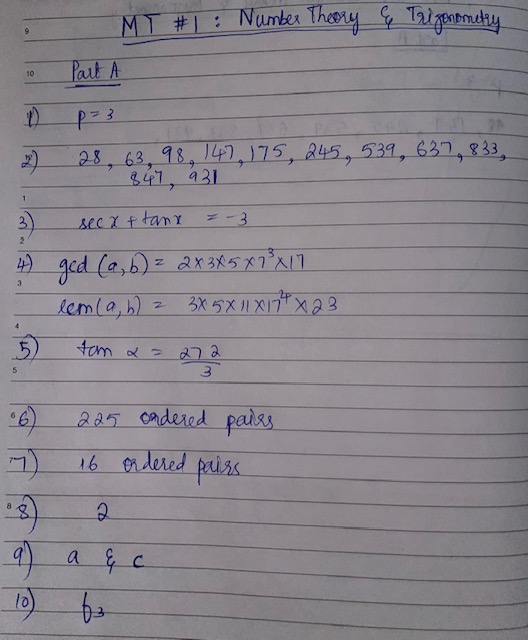 MT #1 : Number Theory & Trigonometry
9
10 Part A
1) p = 3
2) 28, 63, 98, 147, 175, 245, 539, 637, 833,
847, 931
1
3) sec x + tan x = -3
2
4) gcd (a, b) = 2×3×5×7³×17
3
lcm (a, b) = 3×5×11×17⁴×23
4
5) tan α = 272/3
5
6 6) 225 ordered pairs
7 7) 16 ordered pairs
8 8) 2
9) a & c
10) f₃